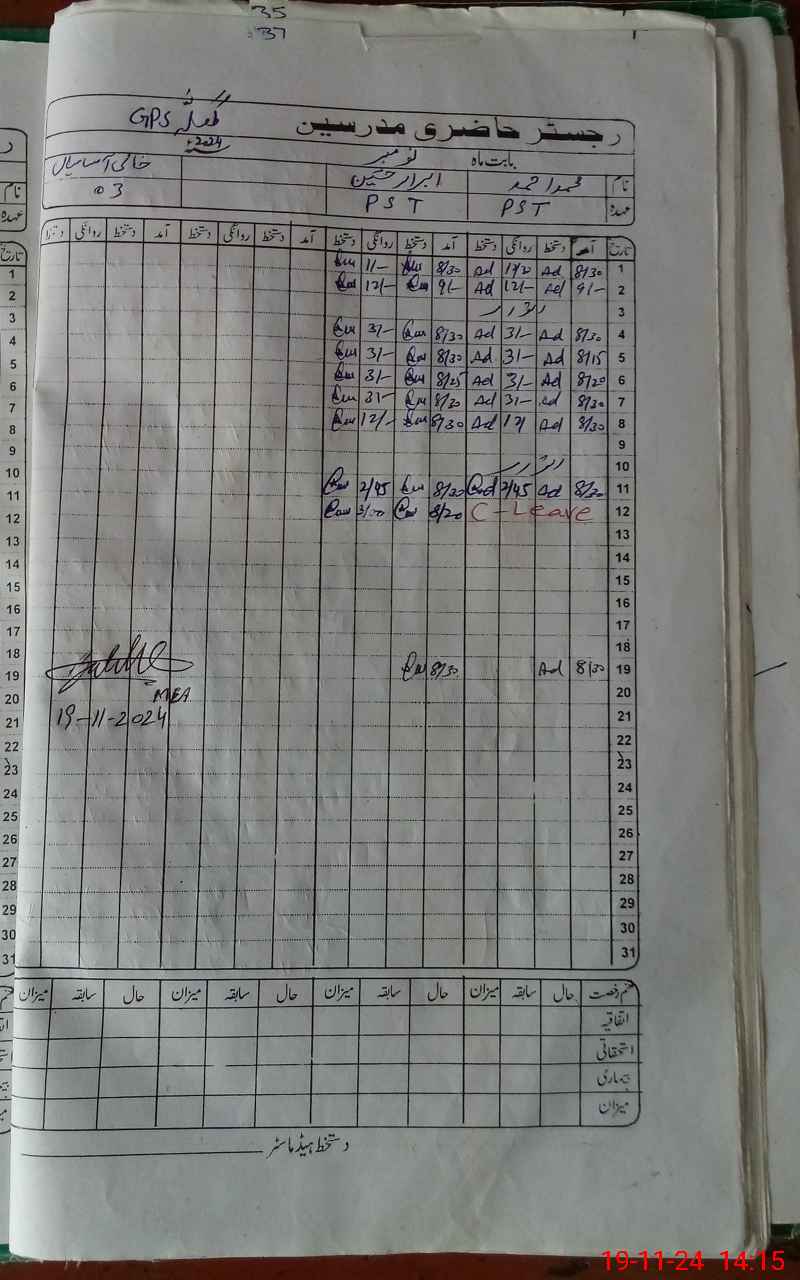 35
37
GPS
رجسٹر حاضری مدرسین
2024
بابت ماہ نومبر
نام محمد احمد ابرار حسین خالی آسامیاں
عہدہ PST PST 03
تاریخ آمد دستخط روانگی دستخط آمد دستخط روانگی دستخط آمد دستخط روانگی دستخط آمد دستخط روانگی دستخط
1 8/30 Ad Ad 8/30 11/-
2 9/- Ad 12/- Ad 9/- 12/-
3 اتوار
4 8/30 Ad 3/- Ad 8/30 3/-
5 8/15 Ad 3/- Ad 8/30 3/-
6 8/20 Ad 3/- Ad 8/25 3/-
7 8/30 Ad 3/- Ad 8/30 3/-
8 8/30 Ad 12/ Ad 8/30 12/-
9
10 اتوار
11 8/30 Ad 2/45 8/30 2/45
12 C-Leave 8/20 3/00
13
14
15
16
17
18
19 8/30 Ad 8/30
20 MEA
21 19-11-2024
22
23
24
25
26
27
28
29
30
31
قسم رخصت حال سابقہ میزان حال سابقہ میزان حال سابقہ میزان حال سابقہ میزان
اتفاقیہ
استحقاقی
بیماری
میزان
دستخط ہیڈ ماسٹر
19-11-24 14:15